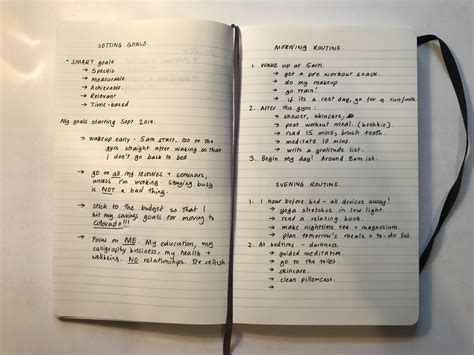 SETTING GOALS
• SMART goals
→ Specific
→ Measurable
→ Achievable
→ Relevant
→ Time-based
My goals starting Sept 2019.
→ wakeup early - 5am start. Go to the
gym straight after waking so that
I don't go back to bed.
→ go to all my lectures + seminars,
unless I'm working. Staying busy
is NOT a bad thing.
→ Stick to the budget so that I
hit my savings goals for moving to
Colorado!!!
→ Focus on ME. My education, my
calligraphy business, my health +
wellbeing. NO relationships. Be selfish
MORNING ROUTINE.
1. Wake up at 5am.
→ get a pre workout snack.
→ do my makeup
→ go train!
→ if its a rest day, go for a run/walk.
2. After the gym:
→ shower, skincare,
→ post workout meal. (brekkie)
→ read 15 mins, brush teeth.
→ meditate 10 mins.
→ write a gratitude list.
3. Begin my day! Around 8am ish.
EVENING ROUTINE.
1. 1 hour before bed - all devices away!
→ yoga stretches in low light.
→ read a relaxing book.
→ make nighttime tea + magnesium.
→ plan tomorrow's meals + to-do list.
2. At bedtime - darkness.
→ guided meditation.
→ go to the toilet.
→ skincare.
→ clean pillowcase.
→